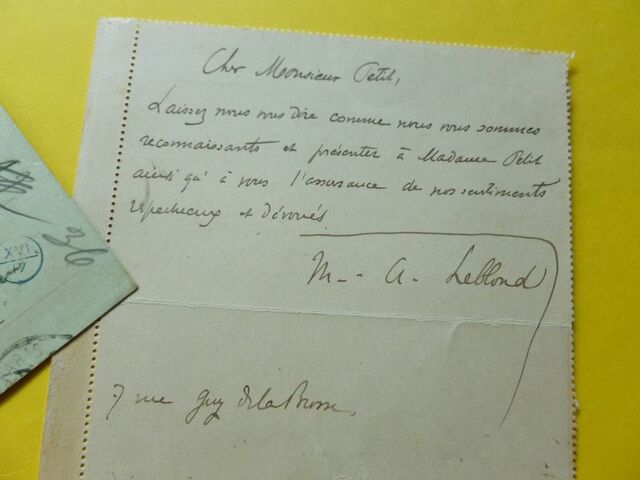 Cher Monsieur Petit,
Laissez nous vous dire comme nous vous sommes
reconnaissants et présenter à Madame Petit
ainsi qu'à vous l'assurance de nos sentiments
respectueux et dévoués
M-. A. Leblond
7 rue Guy de la Brosse.
TAX